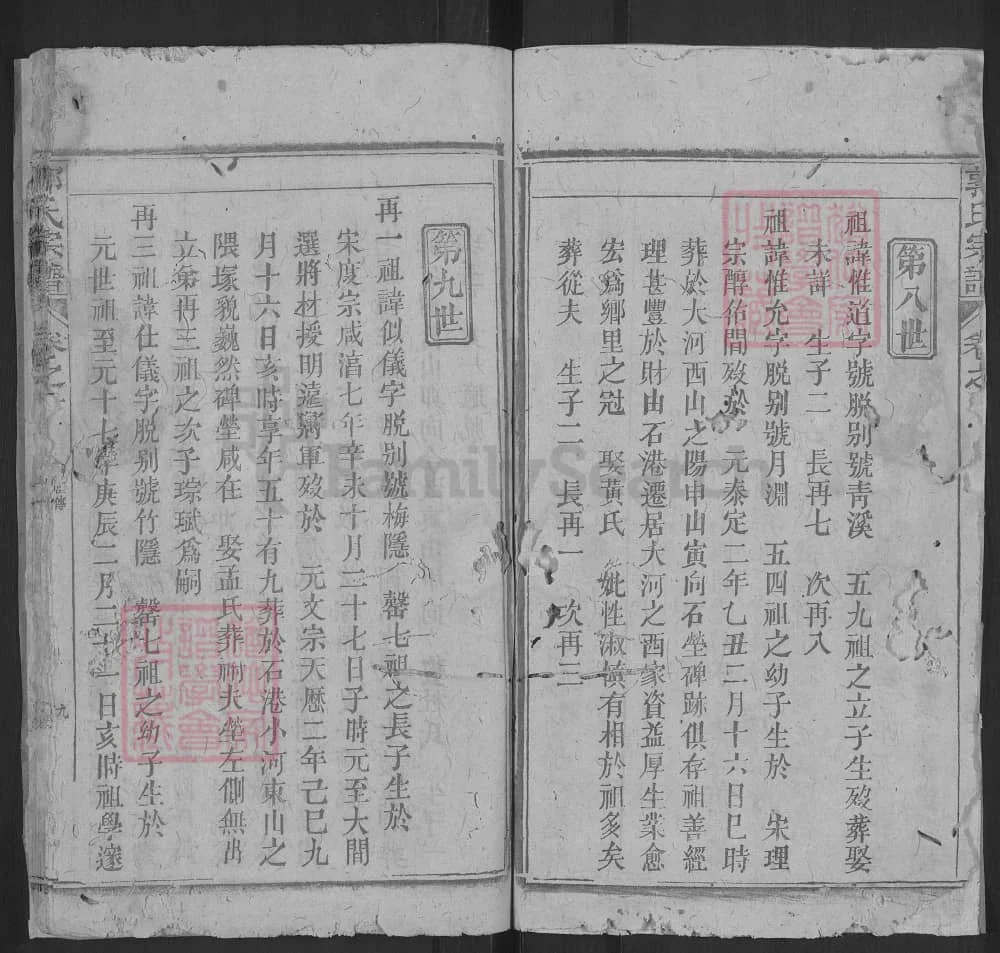 郭氏宗譜 卷之
第八世
祖諱惟道字號脫别號青溪 五九祖之立子生歿葬娶
未詳 生子二 長再七 次再入
祖諱惟允字脫别號月淵 五四祖之幼子生於 宋理
宗醇佑間歿於 元泰定二年乙丑二月十六日巳時
葬於大河西山之陽申山寅向石塋碑跡俱存祖善經
理甚豐於財由石港遷居大河之西家資益厚生業愈
宏爲鄉里之冠 娶黃氏 妣性淑慎有相於祖多矣
葬從夫 生子二 長再一 次再三
第九世
再一祖諱似儀字脫别號梅隱 罄七祖之長子生於
宋度宗咸淯七年辛未十月二十七日子時元至大間
選將材授明遠將軍歿於 元文宗天歷二年己巳九
月十六日亥時享年五十有九葬於石港小河東山之
隈塚貌巍然碑塋咸在 娶孟氏葬祔夫塋左側無出
立第再三祖之次子琮珷爲嗣
再三祖諱仕儀字脫别號竹隱 罄七祖之幼子生於
元世祖至元十七年庚辰二月二十一日亥時祖學邃
郭氏宗譜 卷之
九
FamilySearch